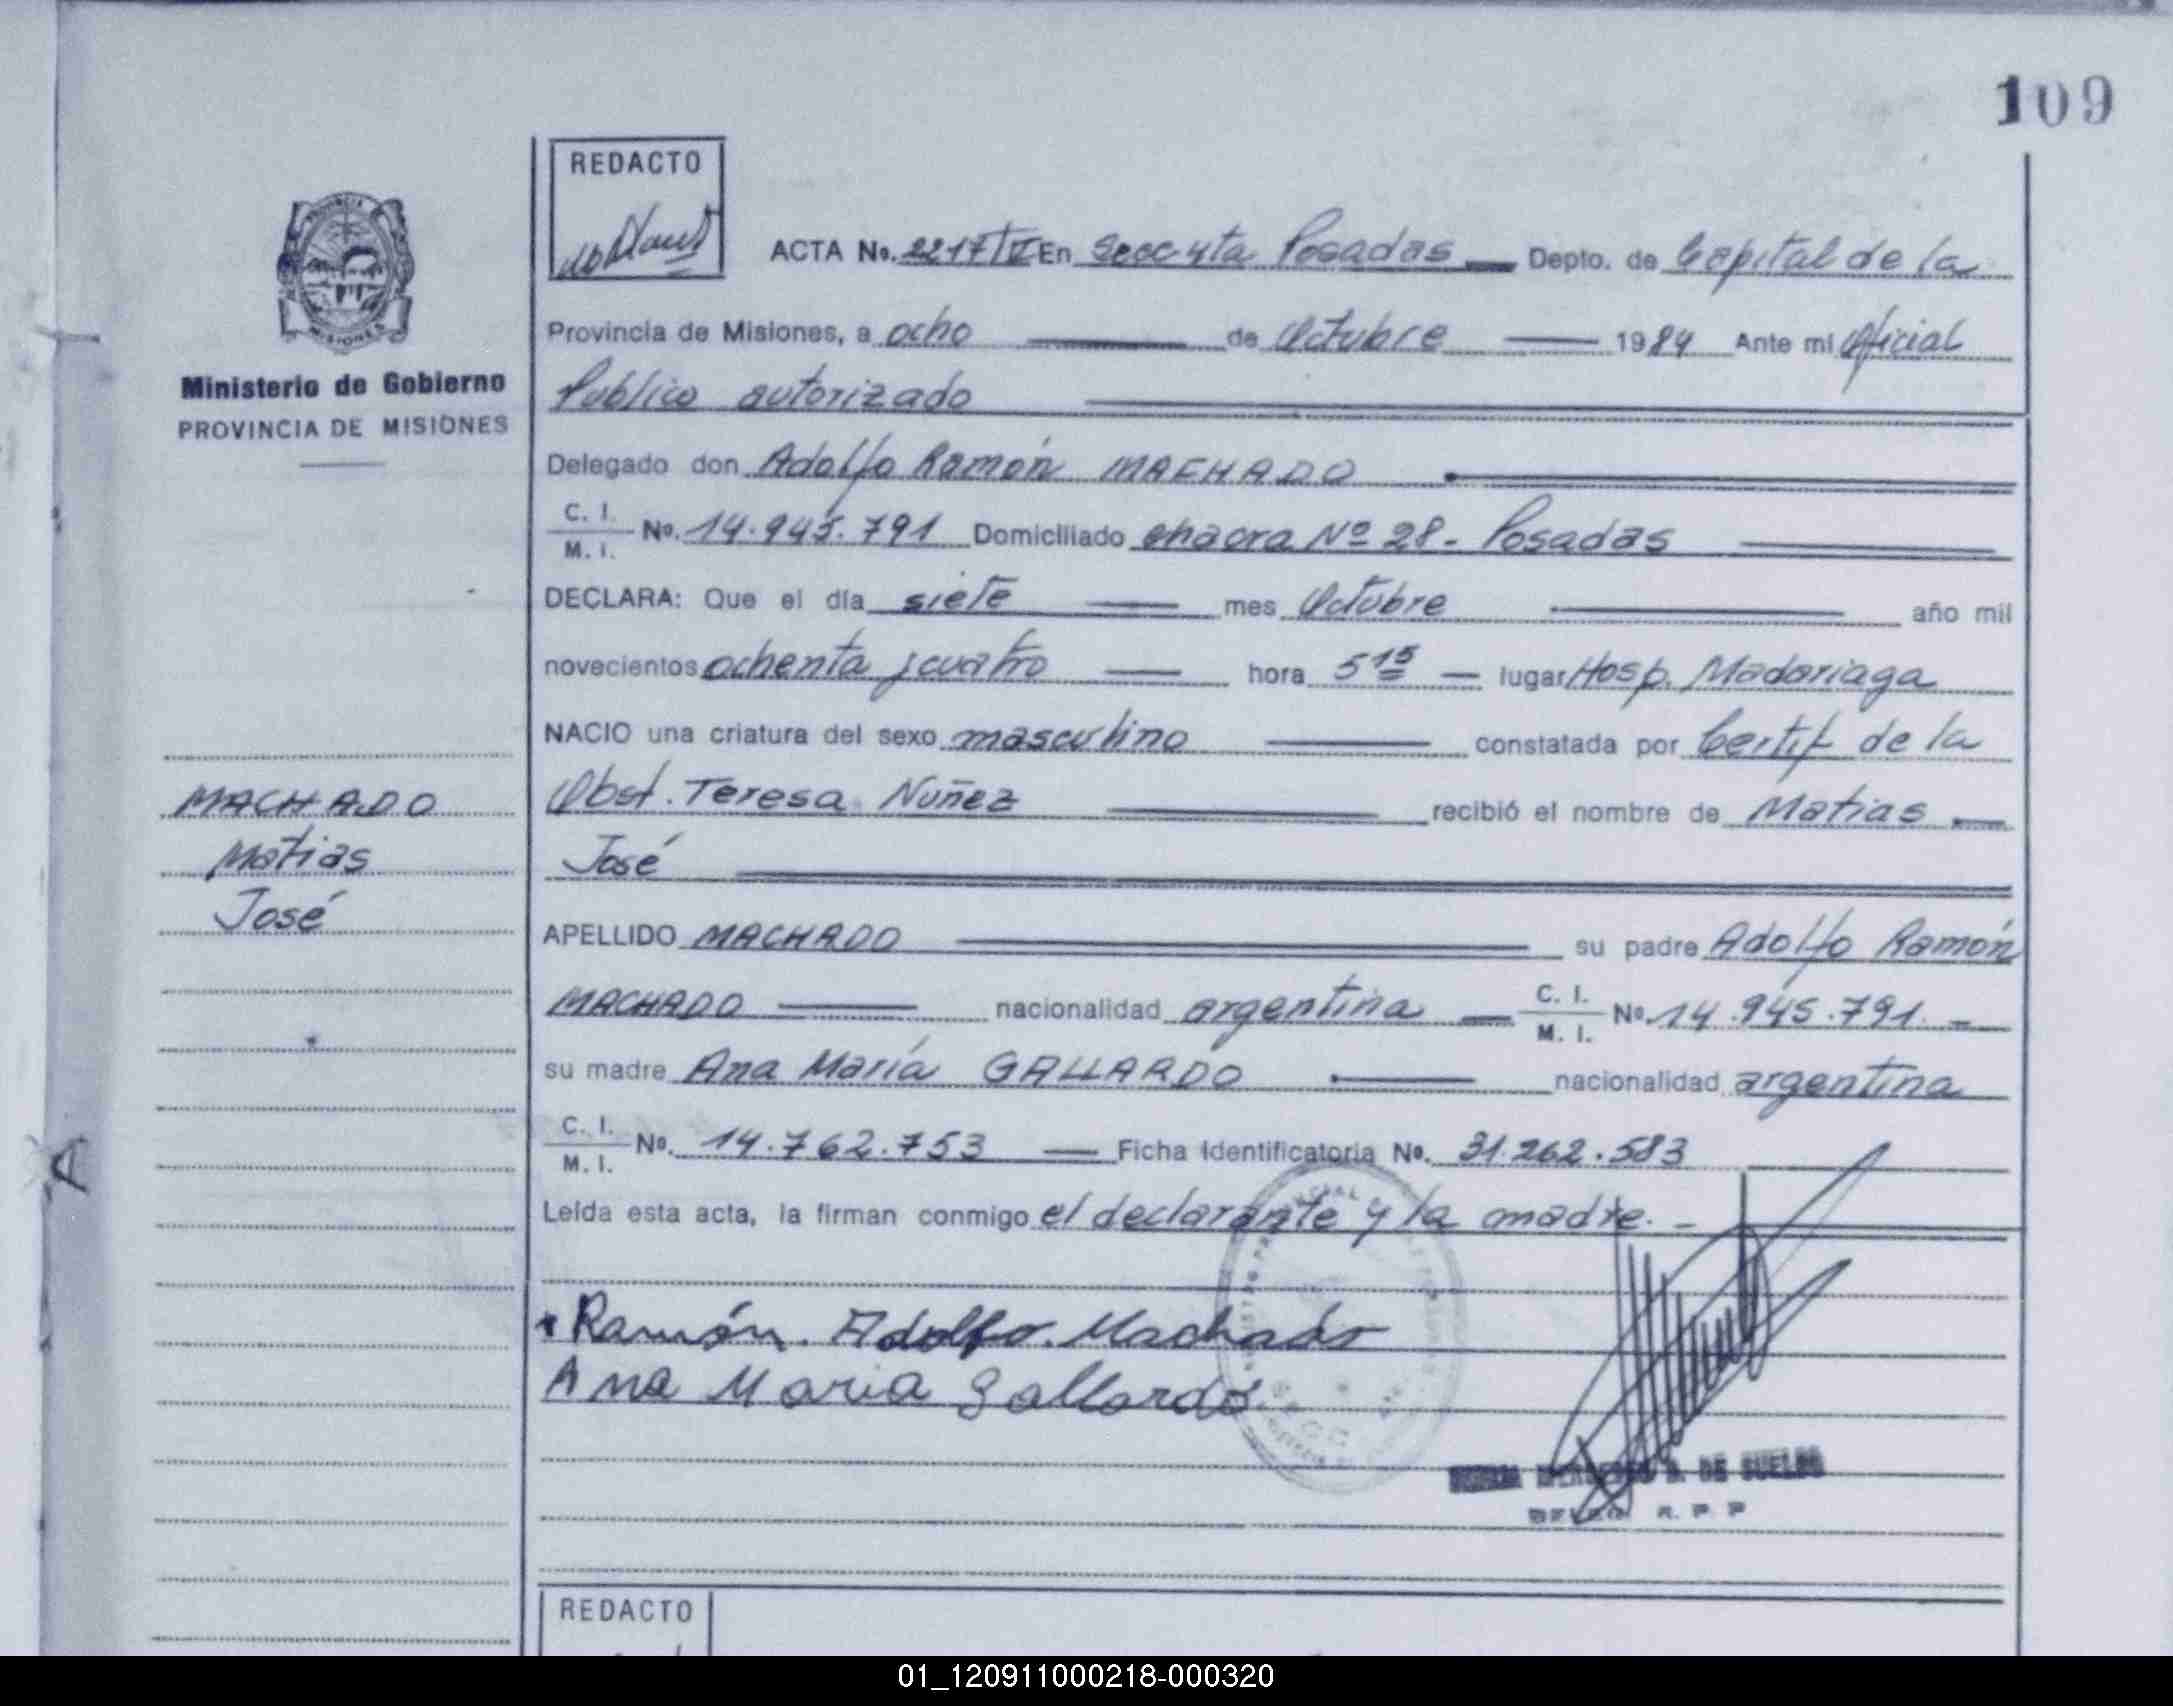 109
REDACTO
ACTA No. 2217/V En Secc 4ta Posadas Depto. de Capital de la
Provincia de Misiones, a ocho de Octubre 1984 Ante mi Oficial
Ministerio de Gobierno
PROVINCIA DE MISIONES
Publico autorizado
Delegado don Adolfo Ramón MACHADO
C. I.
M. I. No. 14.945.791 Domiciliado chacra Nº 28 - Posadas
DECLARA: Que el día siete mes Octubre año mil
novecientos ochenta y cuatro hora 5 15 lugar Hosp. Madariaga
NACIO una criatura del sexo masculino constatada por Certif de la
Obst. Teresa Nuñez recibió el nombre de Matias
José
MACHADO
Matias
José
APELLIDO MACHADO su padre Adolfo Ramón
MACHADO nacionalidad argentina C. I.
M. I. No. 14.945.791. -
su madre Ana María GALLARDO nacionalidad argentina
C. I.
M. I. No. 14.762.753 Ficha Identificatoria No. 31.262.583
A
Leida esta acta, la firman conmigo el declarante y la madre. -
Ramón. Adolfo. Machado
Ana Maria Gallardo.
DE SUELDO
R. P. P
REDACTO
01_120911000218-000320